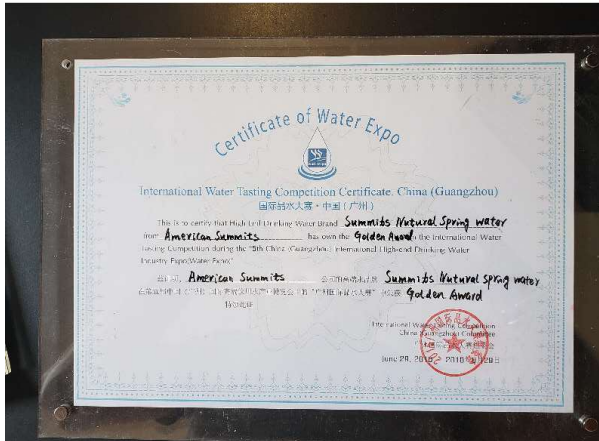 Certificate of Water Expo
International Water Tasting Competition Certificate. China (Guangzhou)
国际品水大赛·中国（广州）
This is to certify that High End Drinking Water Brand Summits Nutural Spring water
from American Summits has own the Golden Award in the International Water
Tasting Competition during the "5th China (Guangzhou) International High-end Drinking Water
Industry Expo(Water Expo)"
American Summits Summits Nutural Spring water
Golden Award
International Water Tasting Competition
China (Guangzhou) Committee
June 28, 2018